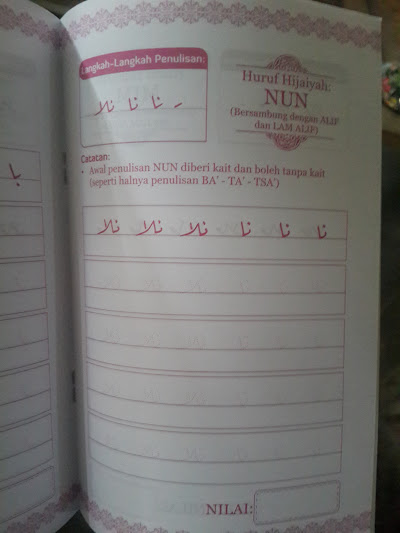 Langkah-Langkah Penulisan:
نا نا نلا
Huruf Hijaiyah:
NUN
(Bersambung dengan ALIF
dan LAM ALIF)
Catatan:
• Awal penulisan NUN diberi kait dan boleh tanpa kait
(seperti halnya penulisan BA' - TA' - TSA')
نا نا نا نلا نلا نلا
NILAI: